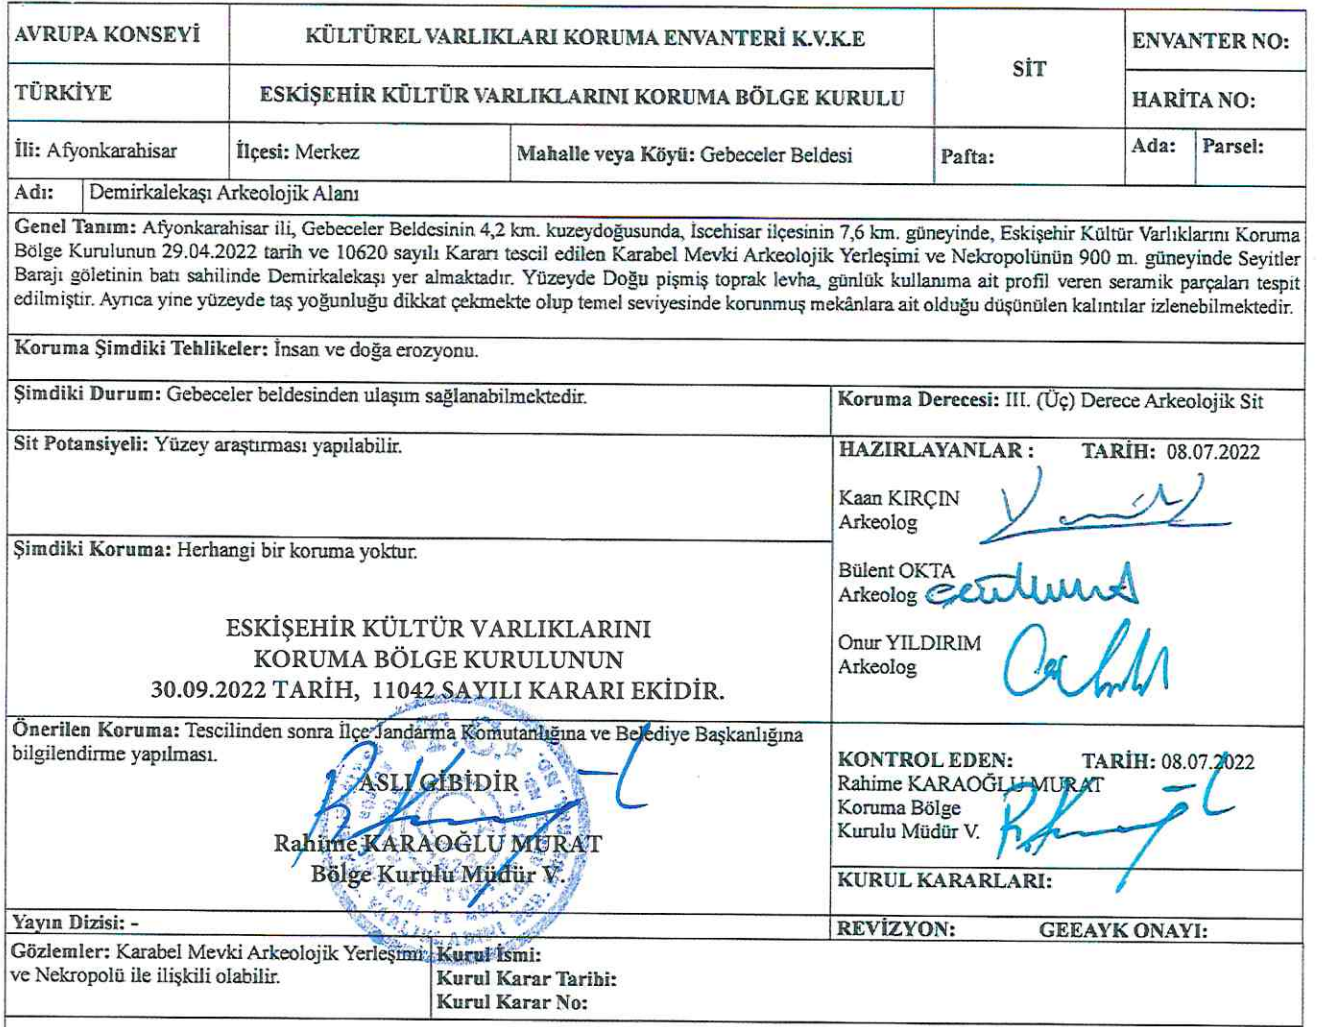 AVRUPA KONSEYİ
KÜLTÜREL VARLIKLARI KORUMA ENVANTERİ K.V.K.E
SİT
ENVANTER NO:
TÜRKİYE
ESKİŞEHİR KÜLTÜR VARLIKLARINI KORUMA BÖLGE KURULU
HARİTA NO:
İli: Afyonkarahisar
İlçesi: Merkez
Mahalle veya Köyü: Gebeceler Beldesi
Pafta:
Ada:
Parsel:
Adı: Demirkalekaşı Arkeolojik Alanı
Genel Tanım: Afyonkarahisar ili, Gebeceler Beldesinin 4,2 km. kuzeydoğusunda, İscehisar ilçesinin 7,6 km. güneyinde, Eskişehir Kültür Varlıklarını Koruma
Bölge Kurulunun 29.04.2022 tarih ve 10620 sayılı Kararı tescil edilen Karabel Mevki Arkeolojik Yerleşimi ve Nekropolünün 900 m. güneyinde Seyitler
Barajı göletinin batı sahilinde Demirkalekaşı yer almaktadır. Yüzeyde Doğu pişmiş toprak levha, günlük kullanıma ait profil veren seramik parçaları tespit
edilmiştir. Ayrıca yine yüzeyde taş yoğunluğu dikkat çekmekte olup temel seviyesinde korunmuş mekânlara ait olduğu düşünülen kalıntılar izlenebilmektedir.
Koruma Şimdiki Tehlikeler: İnsan ve doğa erozyonu.
Şimdiki Durum: Gebeceler beldesinden ulaşım sağlanabilmektedir.
Koruma Derecesi: III. (Üç) Derece Arkeolojik Sit
Sit Potansiyeli: Yüzey araştırması yapılabilir.
HAZIRLAYANLAR : TARİH: 08.07.2022
Kaan KIRÇIN
Arkeolog
Şimdiki Koruma: Herhangi bir koruma yoktur.
Bülent OKTA
Arkeolog
ESKİŞEHİR KÜLTÜR VARLIKLARINI
KORUMA BÖLGE KURULUNUN
30.09.2022 TARİH, 11042 SAYILI KARARI EKİDİR.
Onur YILDIRIM
Arkeolog
Önerilen Koruma: Tescilinden sonra İlçe Jandarma Komutanlığına ve Belediye Başkanlığına
bilgilendirme yapılması.
ASLI GİBİDİR
Rahime KARAOĞLU MURAT
Bölge Kurulu Müdür V.
KONTROL EDEN: TARİH: 08.07.2022
Rahime KARAOĞLU MURAT
Koruma Bölge
Kurulu Müdür V.
KURUL KARARLARI:
Yayın Dizisi: -
REVİZYON: GEEAYK ONAYI:
Gözlemler: Karabel Mevki Arkeolojik Yerleşimi
ve Nekropolü ile ilişkili olabilir.
Kurul İsmi:
Kurul Karar Tarihi:
Kurul Karar No: